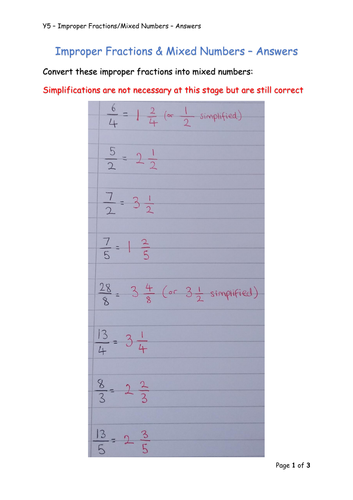 Y5 – Improper Fractions/Mixed Numbers – Answers
Improper Fractions & Mixed Numbers – Answers
Convert these improper fractions into mixed numbers:
Simplifications are not necessary at this stage but are still correct
6/4 = 1 2/4 (or 1/2 simplified)
5/2 = 2 1/2
7/2 = 3 1/2
7/5 = 1 2/5
28/8 = 3 4/8 (or 3 1/2 simplified)
13/4 = 3 1/4
8/3 = 2 2/3
13/5 = 2 3/5
Page 1 of 3